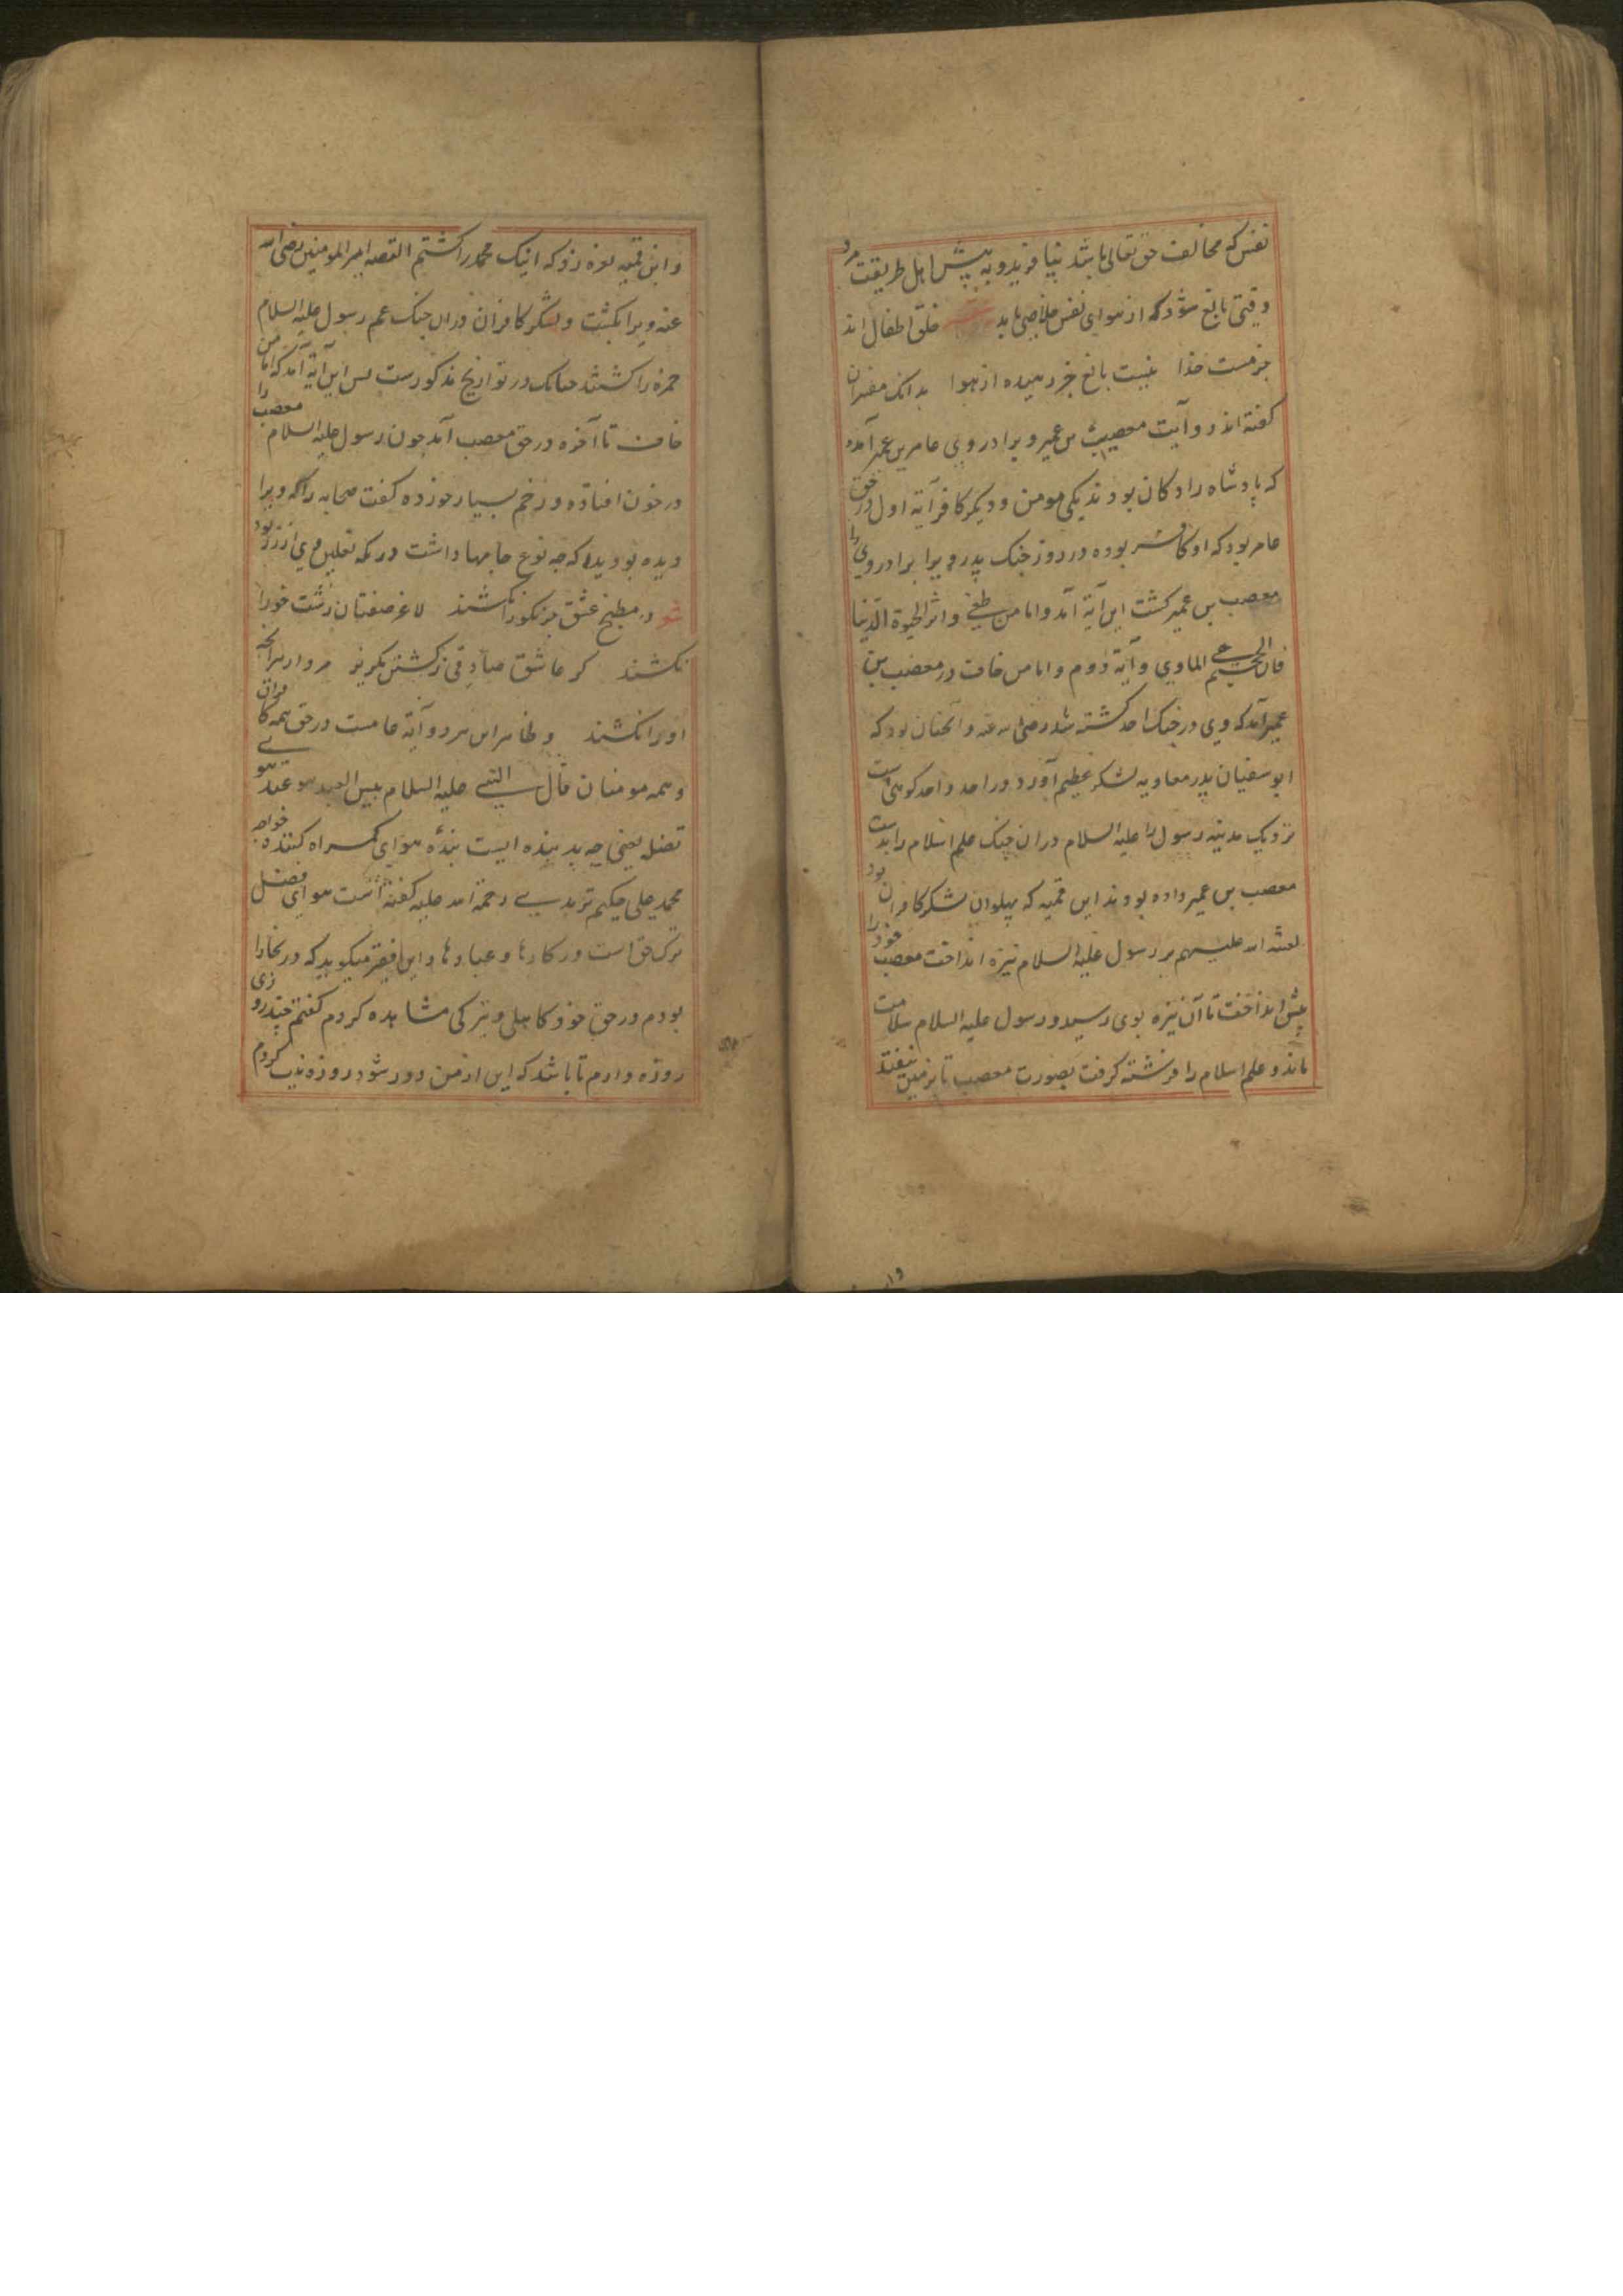 نفس که مخالف حق تعالی باشد نیافریدو به پیش اهل طریقت مرد
وقتی بالغ شود که از هوای نفس خلاصی یابد خلق اطفال اند
جز مست خدا نیست بالغ جز رهیده از هوا بدانک مفسران
گفته اند دو آیت معصب بن عمیر و برادر وی عامر بن عمیر آمده
که پادشاه زادکان بودند یکی مومن و دیکر کافر آیة اول در حق
عامر بود که او کافر بوده در روز جنک بدر ویرا برادر وی
معصب بن عمیر کشت این آیة آمد واما من طغی واثر الحیوة الدنیا
فان الجحیم هی الماوی و آیة دوم واما من خاف در معصب بن
عمیر آمد که وی در جنک احد کشته شد رضی الله عنه و آنچنان بود که
ابوسفیان پدر معاویه لشکر عظیم آورد در احد و احد کوهی است
نزدیک مدینه رسول را علیه السلام دران جنک علم اسلام را بدست
معصب بن عمیر داده بودند ابن قمیه که پهلوان لشکر کافران بود
لعنة الله علیهم بر رسول علیه السلام نیزه انداخت معصب خود را
پیش انداخت تا آن نیزه بوی رسید و رسول علیه السلام سلامت
ماند و علم اسلام را فرشته کرفت بصورت معصب تا بر زمین نیفتد
و ابن قمیه نعره زد که اینک محمد را کشتم القصه امیر المومنین رضی الله
عنه ویرا بکشت و لشکر کافران دران جنک عم رسول علیه السلام
حمزه را کشتند چنانک در تواریخ مذکورست پس این آیة آمد که اما من
خاف تا آخره در حق معصب آمد چون رسول علیه السلام معصب را
در خون افتاده و زخم بسیار خورده کفت صحابه را که ویرا
دیده بودید که چه نوع جامها داشت در مکه نعلین وی از زر بود
در مطبخ عشق جز نکو را نکشند لاغر صفتان زشت خو را
نکشند کر عاشق صادقی ز کشتن مکریز مردار بود هر آنچه
او را نکشند و ظاهر این هر دو آیة عامست در حق همه کافران
و همه مومنان قال النبی علیه السلام بیس العبد عبد هوی
تضله یعنی چه بد بنده ایست بندهٔ هوای کمراه کننده خواجه
محمد علی حکیم ترمدی رحمة الله علیه کفته است هوای مضل
ترک حق است در کارها و عبادتها و این فقیر میکوید که در بخارا
بودم در حق خود کاهلی و تیزکی مشاهده کردم کفتم چند روزی
روزه دارم تا باشد که این از من دور شود روزه نیت کردم